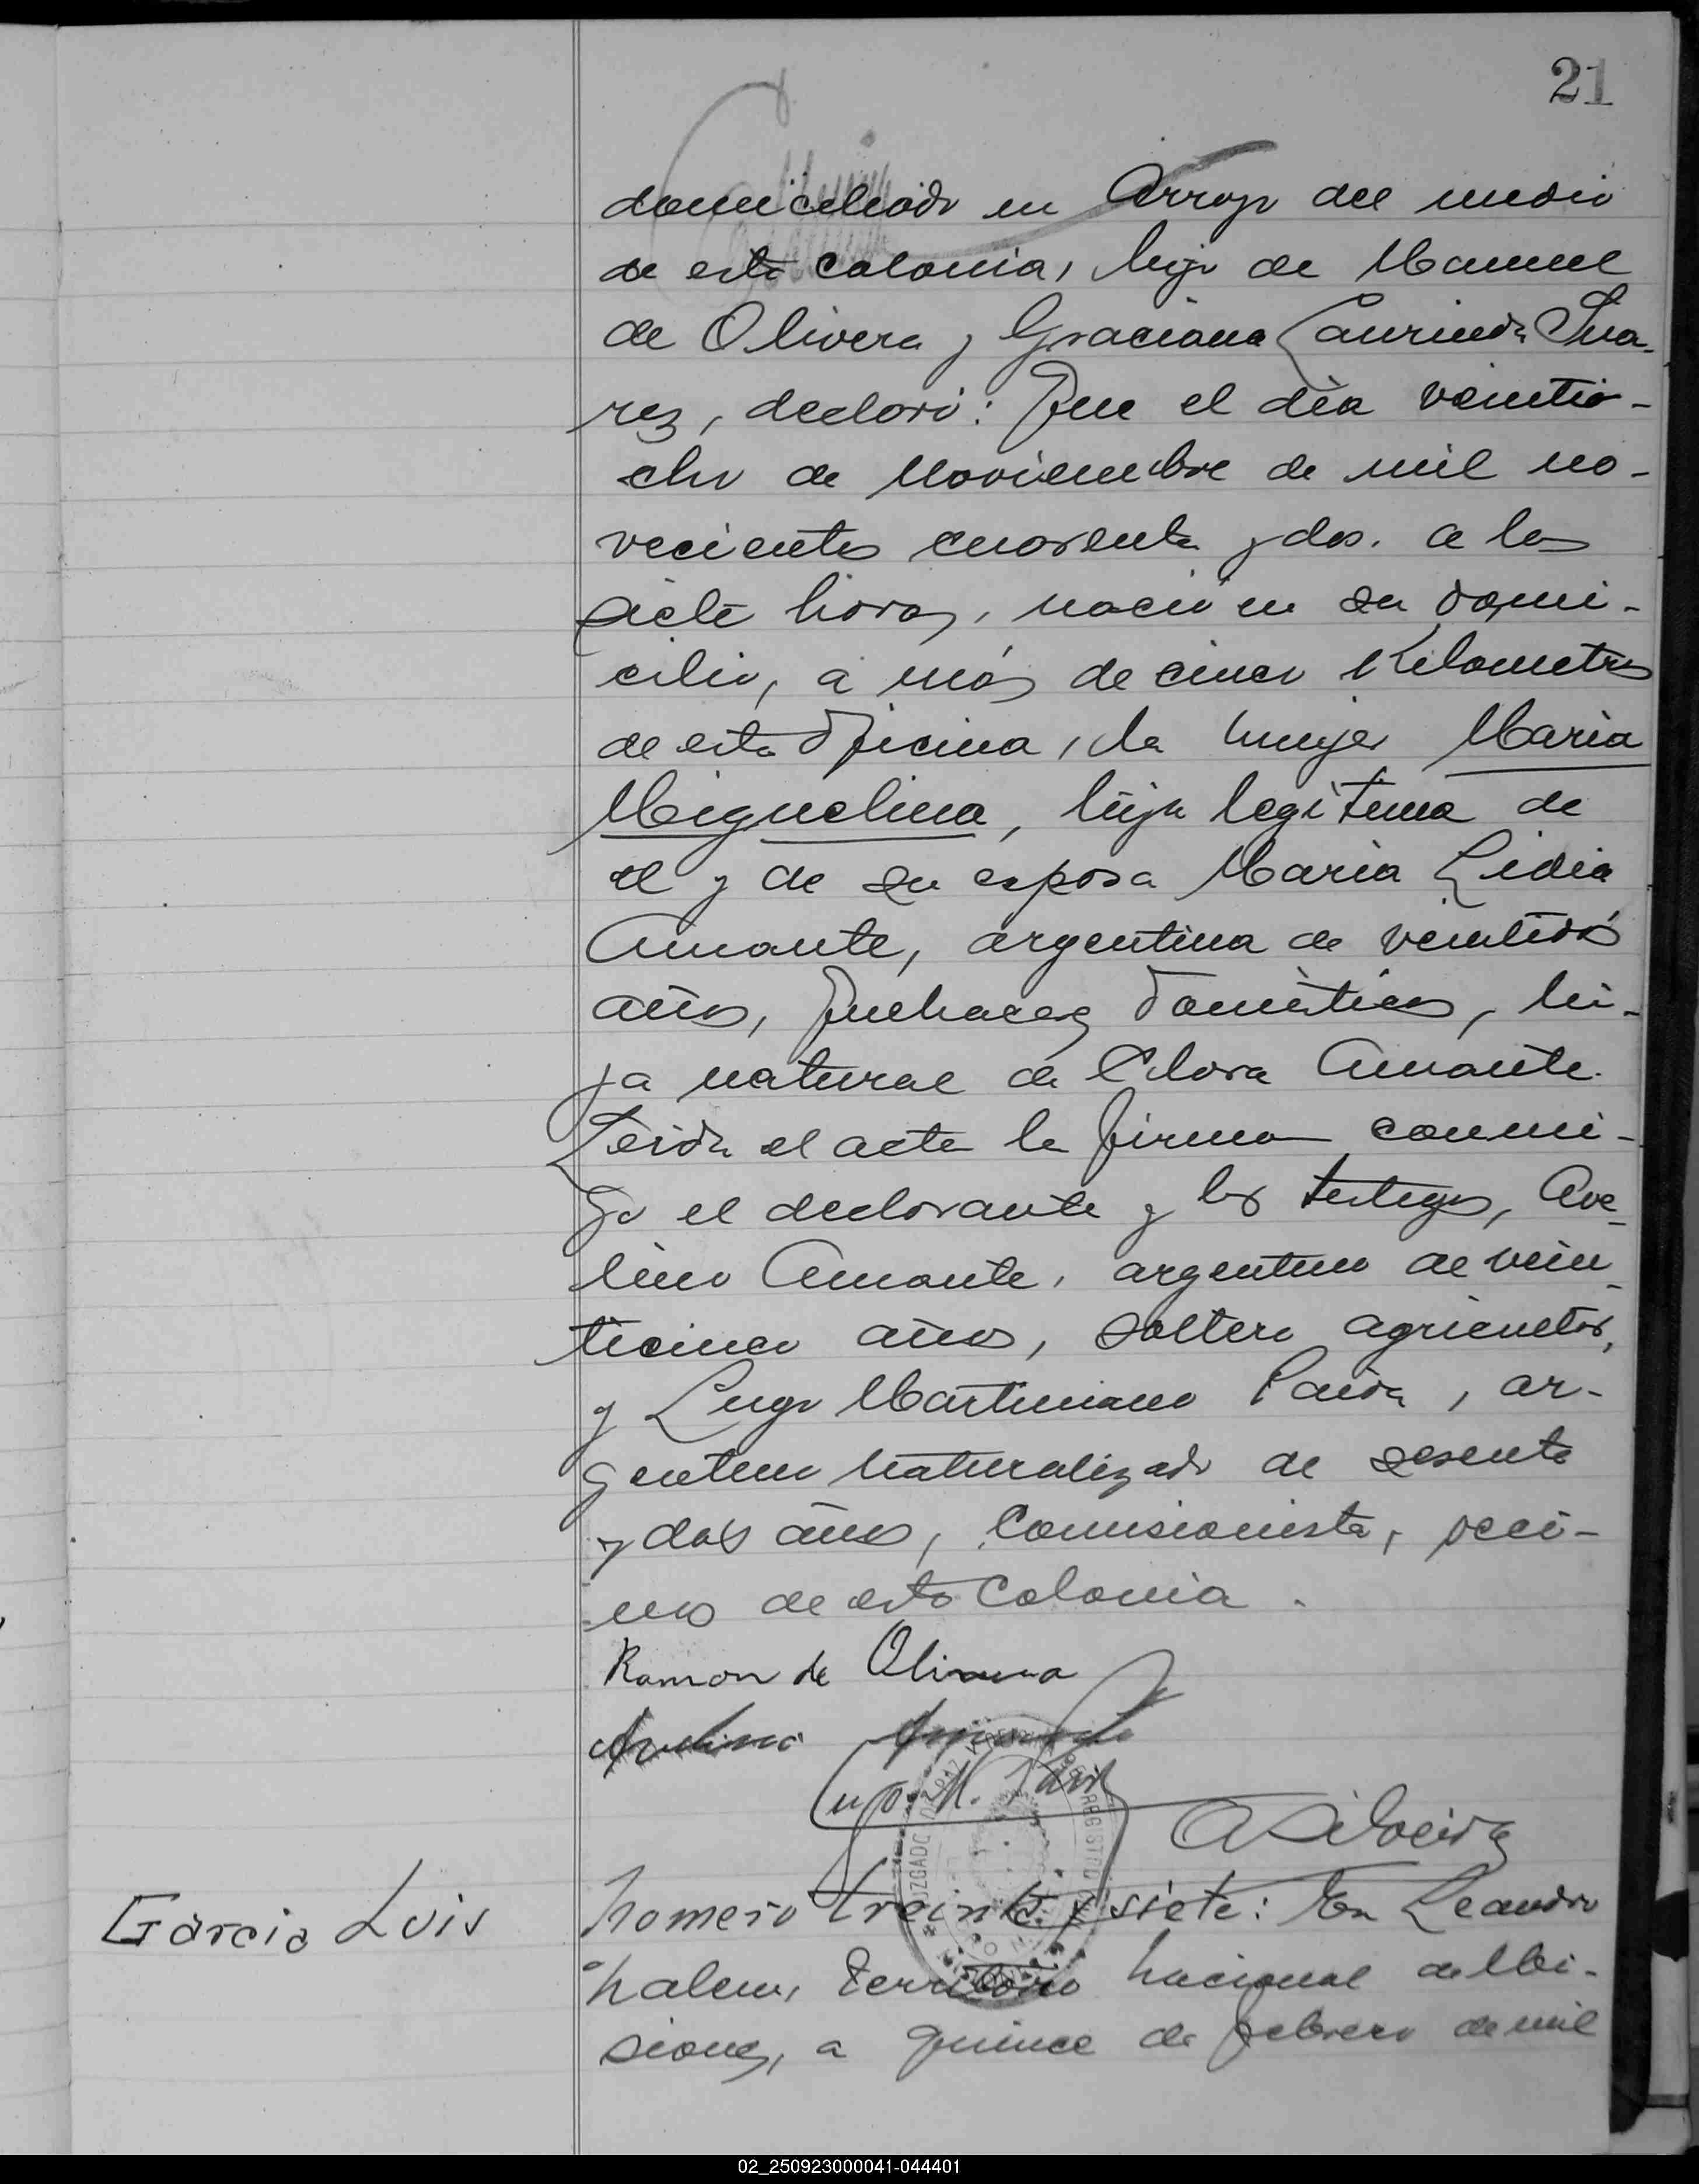 21
domiciliado en Arroyo del medio
de esta colonia, hijo de Manuel
de Olivera y Graciana Laurinda Sua-
rez, declaró: Que el dia veintio-
cho de Noviembre de mil no-
vecientos cuarenta y dos. a las
siete horas, nació en su domi-
cilio, a más de cinco Kilometros
de esta Oficina, la mujer Maria
Miguelina, hija legitima de
el y de su esposa Maria Lidia
Amante, argentina de veintidós
años, Quehaceres Domésticos, hi-
ja natural de Clara Amante.
Leida el acta la firman conmi-
go el declarante y los testigos, Ave-
lino Amante, argentino de vein-
ticinco años, soltero agricultor,
y Lugo Martiniano Paiva, ar-
gentino naturalizado de sesenta
y dos años, Comisionista, veci-
nos de esta Colonia.
Ramon de Olivera
Avelino Amante
JUZGADO DE PAZ REGISTRO
Garcia Luis
Numero treinta y siete: En Leandro
N alem, Territorio Nacional de Mi-
siones, a quince de febrero de mil
02_250923000041-044401